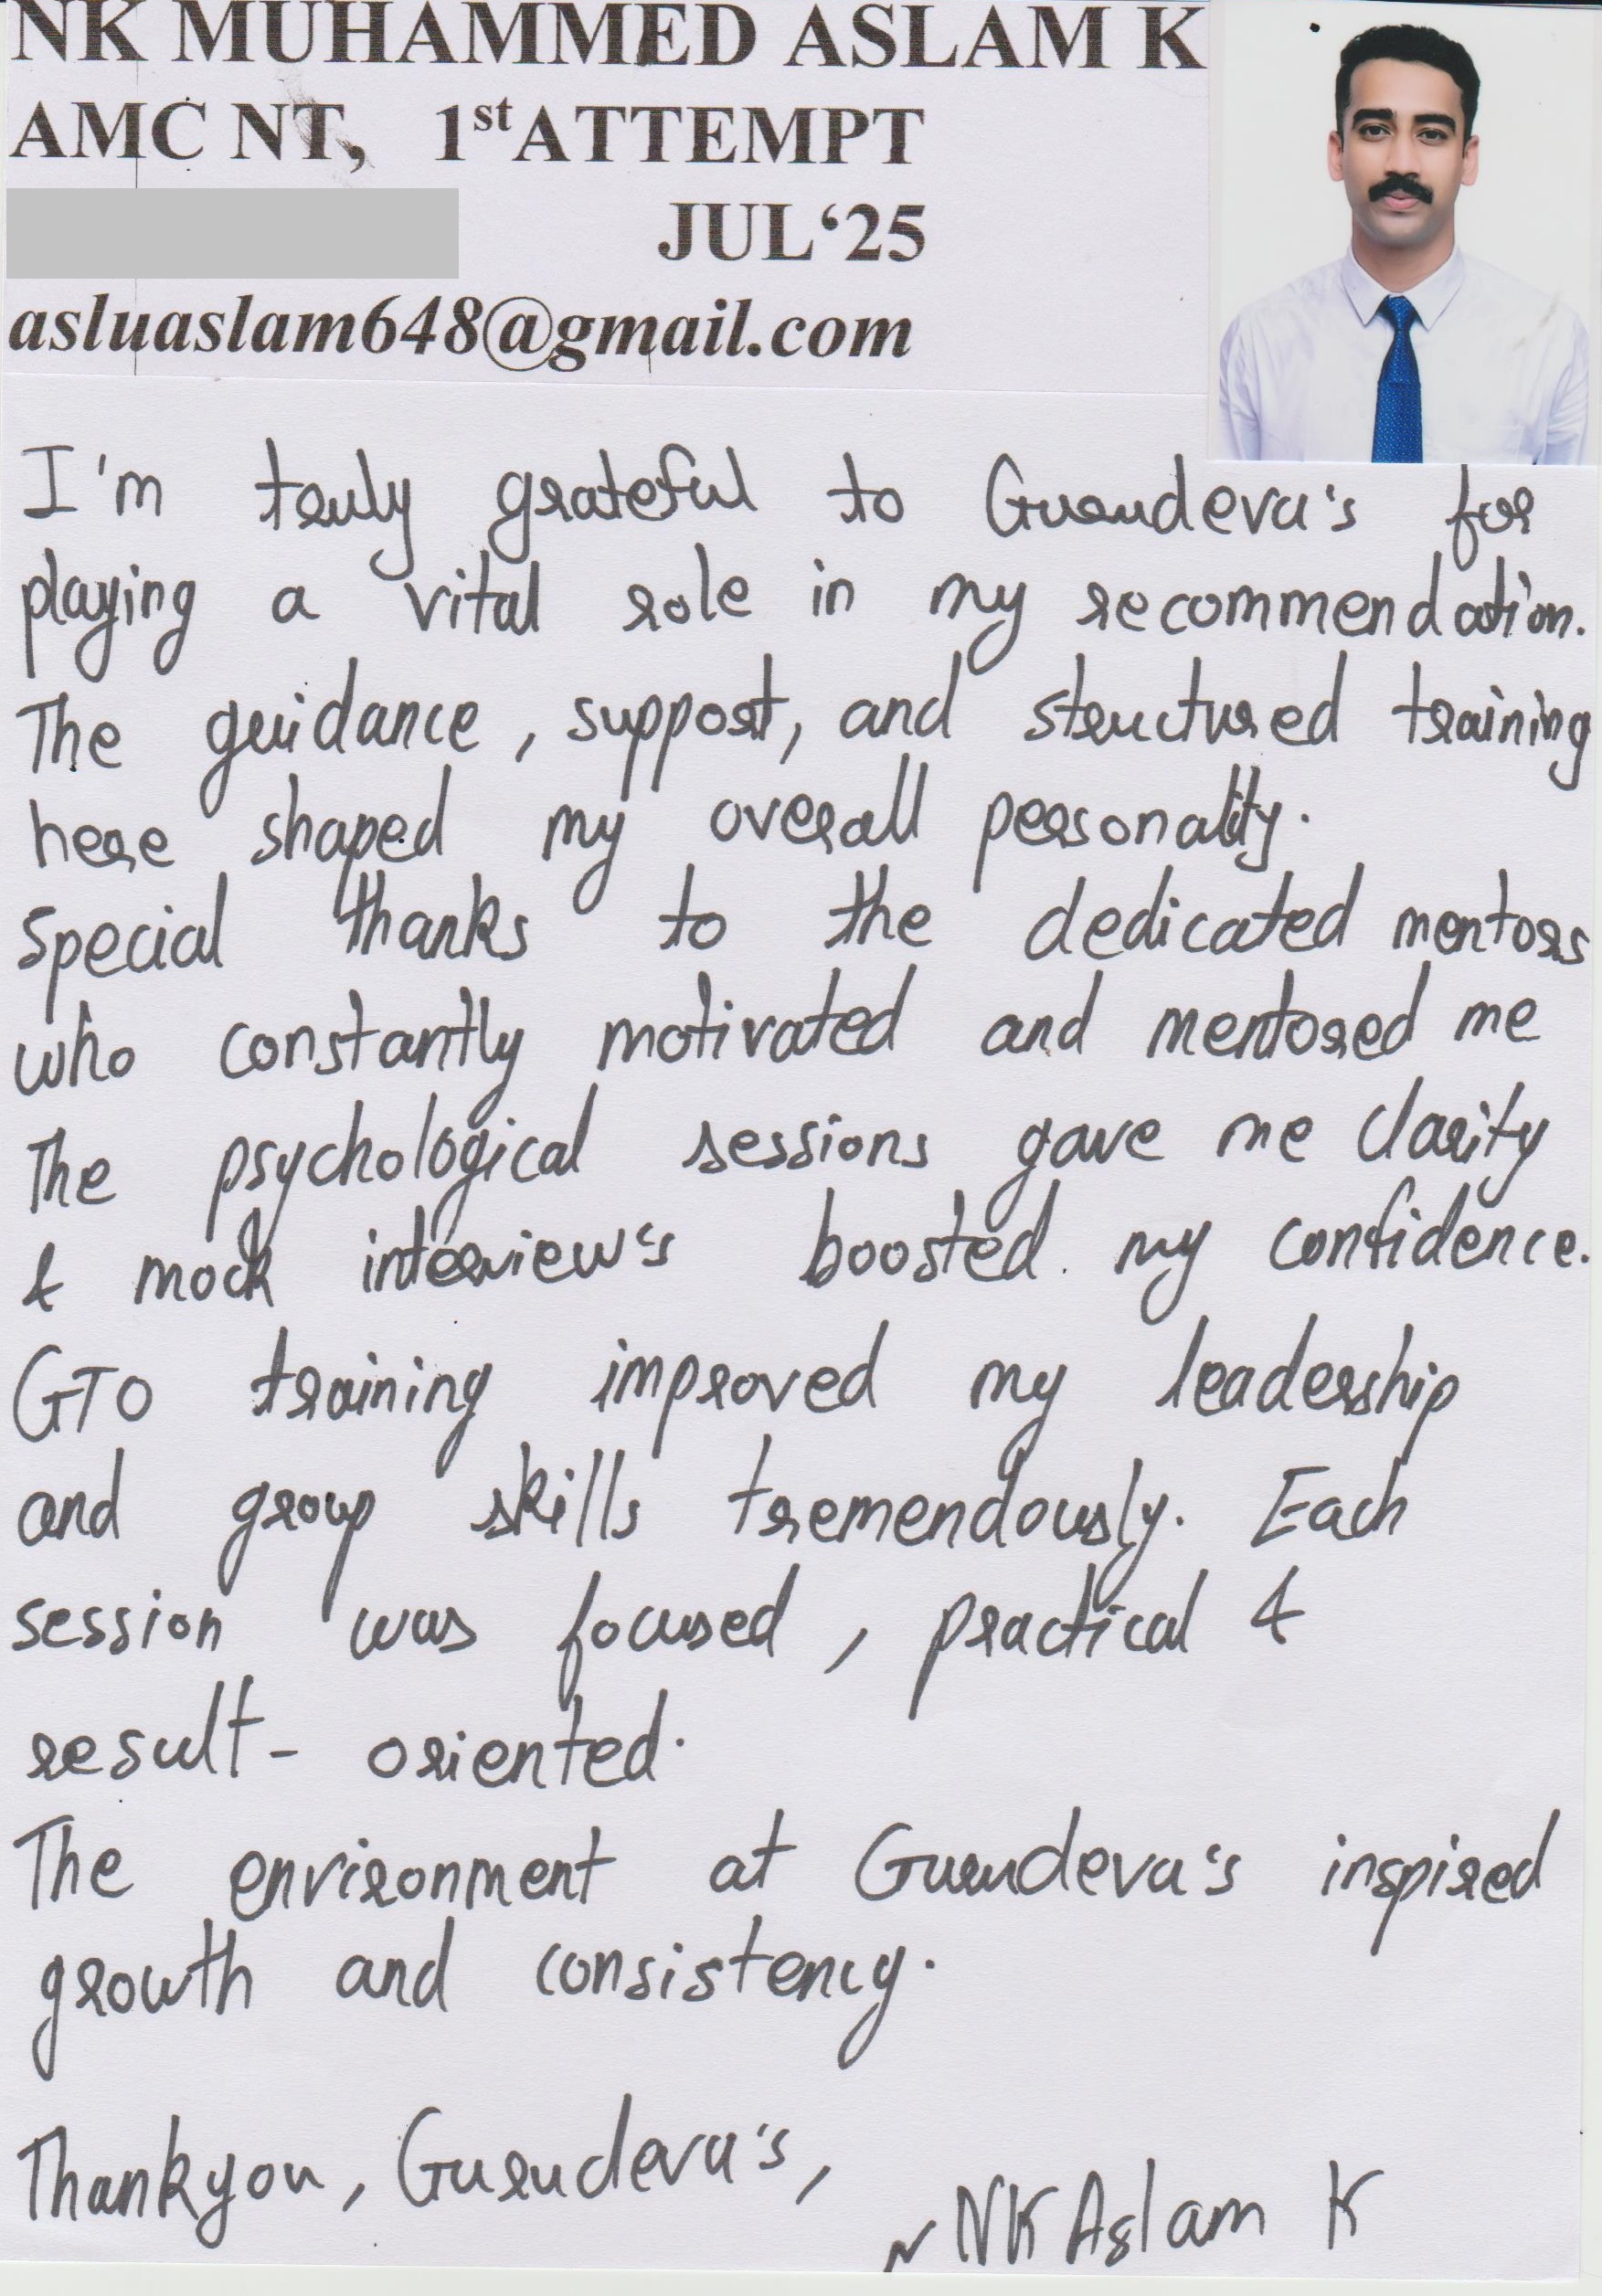 NK MUHAMMED ASLAM K
AMC NT, 1st ATTEMPT
JUL‘25
asluaslam648@gmail.com
I'm truly grateful to Gurudeva's for
playing a vital role in my recommendation.
The guidance, support, and structured training
here shaped my overall personality.
Special thanks to the dedicated mentors
who constantly motivated and mentored me
The psychological sessions gave me clarity
& mock interview's boosted my confidence.
GTO training improved my leadership
and group skills tremendously. Each
session was focused, practical &
result- oriented.
The environment at Gurudeva's inspired
growth and consistency.
Thankyou, Gurudeva's,
~ NK Aslam K